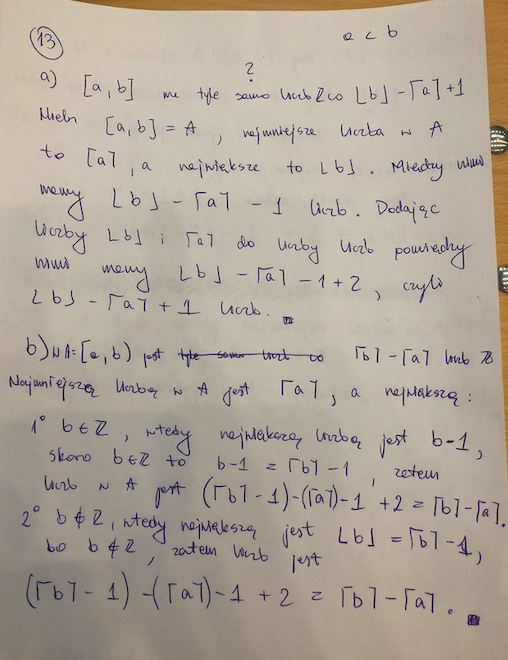 13 a < b
?
a) [a, b] ma tyle samo liczb Z co ⌊b⌋ - ⌈a⌉ + 1
Niech [a, b] = A , najmniejsza liczba w A
to ⌈a⌉, a największa to ⌊b⌋. Między nimi
mamy ⌊b⌋ - ⌈a⌉ - 1 liczb. Dodając
liczby ⌊b⌋ i ⌈a⌉ do liczby liczb pomiędzy
nimi mamy ⌊b⌋ - ⌈a⌉ - 1 + 2 , czyli
⌊b⌋ - ⌈a⌉ + 1 liczb.
b) W A = [a, b) jest tyle samo liczb co ⌈b⌉ - ⌈a⌉ liczb Z
Najmniejszą liczbą w A jest ⌈a⌉, a największą :
1° b ∈ Z , wtedy największą liczbą jest b-1,
skoro b ∈ Z to b-1 = ⌈b⌉ - 1 , zatem
liczb w A jest (⌈b⌉ - 1) - (⌈a⌉) - 1 + 2 = ⌈b⌉ - ⌈a⌉.
2° b ∉ Z, wtedy największą jest ⌊b⌋ = ⌈b⌉ - 1,
bo b ∉ Z , zatem liczb jest
(⌈b⌉ - 1) - (⌈a⌉) - 1 + 2 = ⌈b⌉ - ⌈a⌉ .